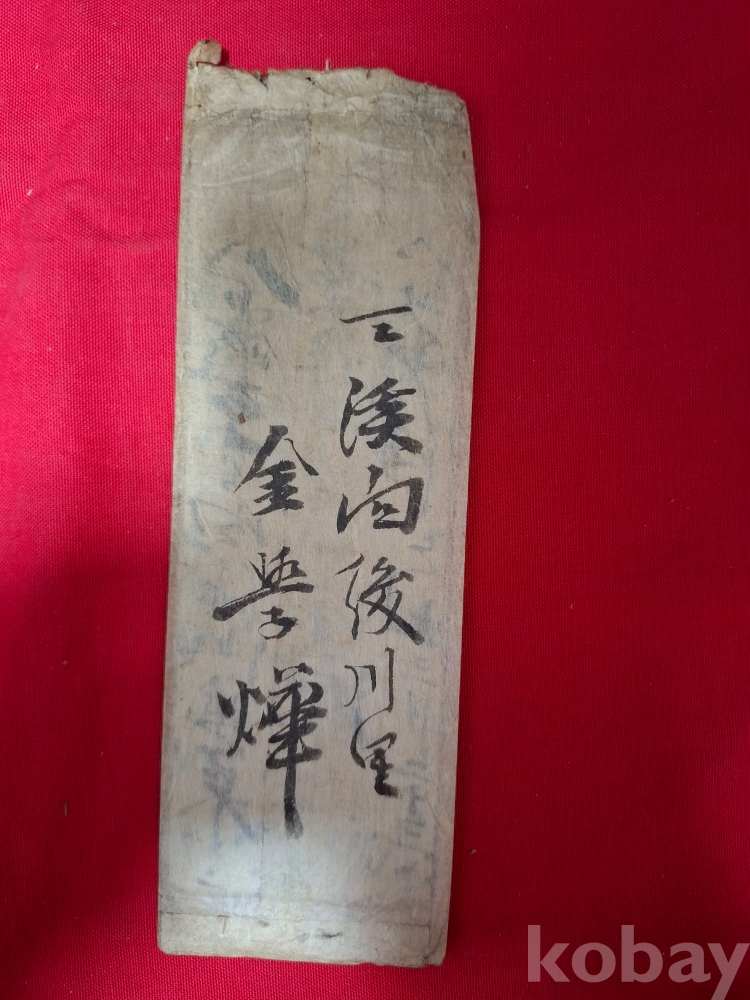 三溪面後川里
金學燁
kobay